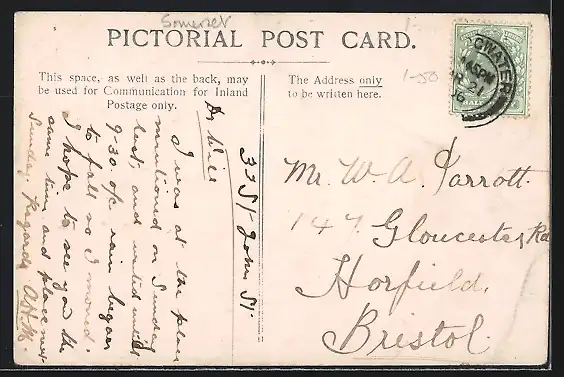 Somerset
PICTORIAL POST CARD.
This space, as well as the back, may
be used for Communication for Inland
Postage only.
The Address only
to be written here.
1-50
GWATER
21
HALF
33 St John St.
Dr Will
I was at the place
mentioned on Sunday
last, and waited until
9-30. o/c rain began
to fall so I moved.
I hope to see you the
same time and place next
Sunday, Regards A.H.M.
Mr. W. A. Parrott.
147. Gloucester Rd
Horfield,
Bristol.